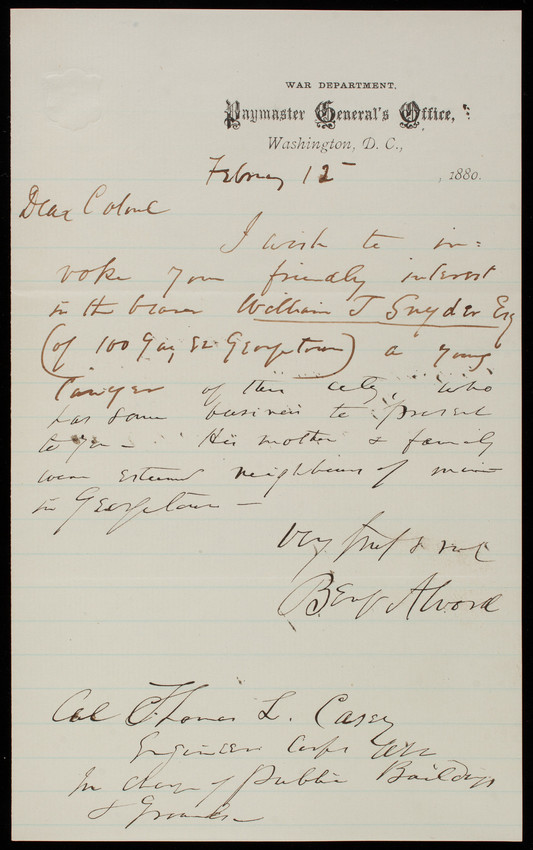 WAR DEPARTMENT,
Paymaster General's Office,
Washington, D. C.,
February 12 , 1880.
Dear Colonel
I wish to in=
voke your friendly interest
in the bearer William J Snyder Esq
(of 100 Gay St Georgetown) a young
lawyer of this city, who
has some business to present
to you — His mother & family
were esteemed neighbours of mine
in Georgetown —
Very truly &
Benj Alvord
Col Thomas L. Casey
Engineer Corps
In charge of Public Buildings
& Grounds —